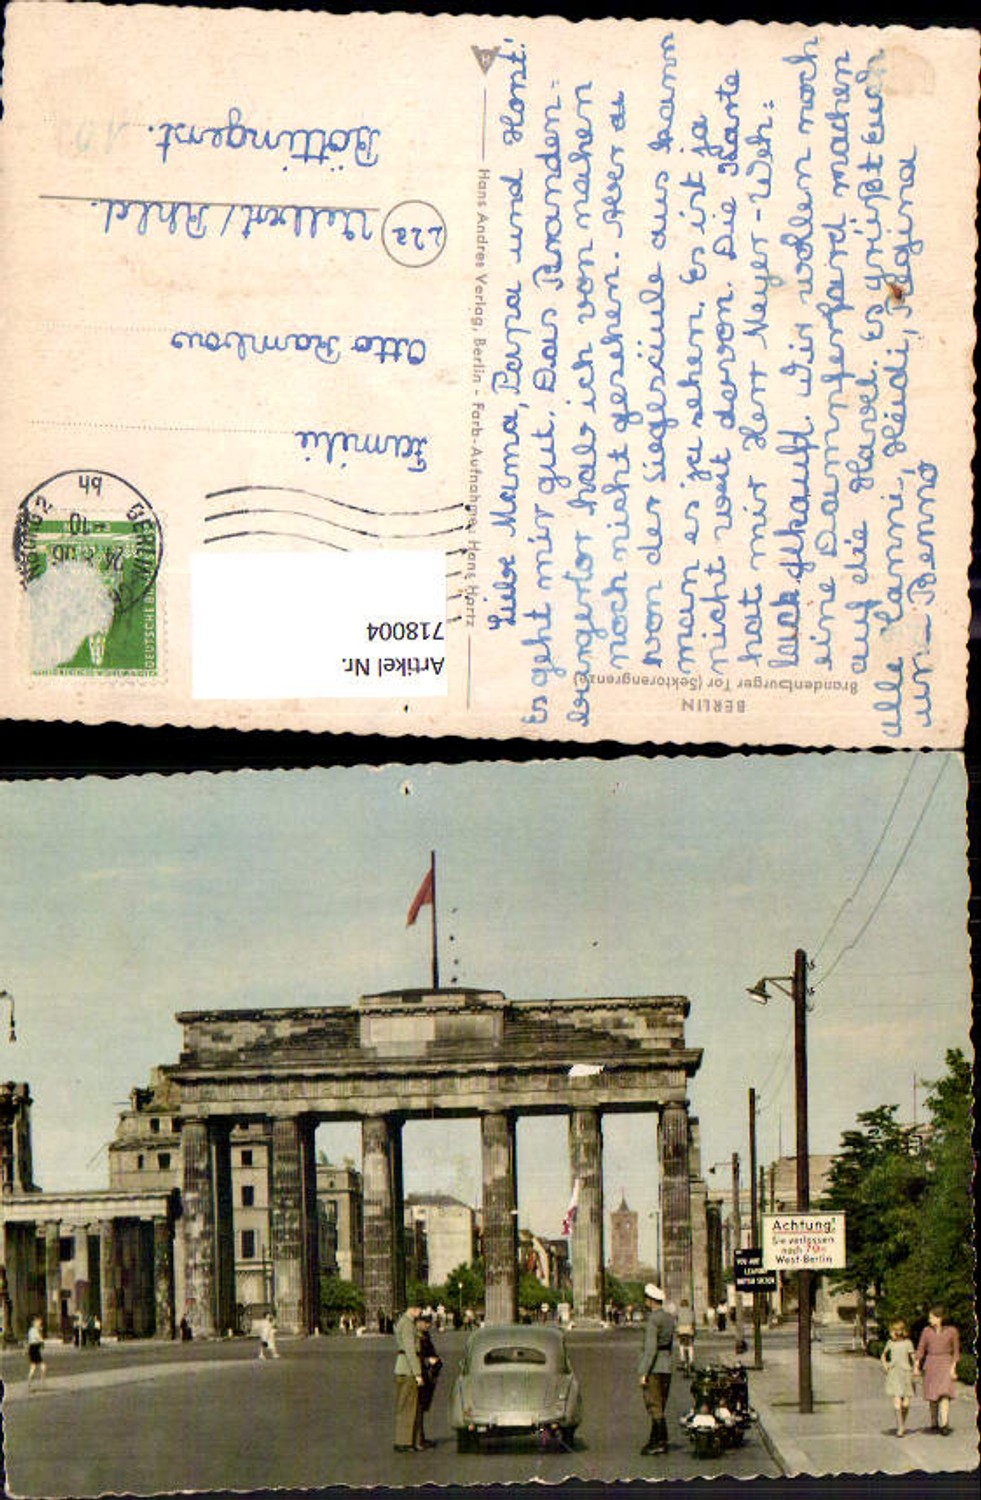 Liebe Mama, Papa und Horst!
Es geht mir gut. Das Branden-
burgertor hab ich von nahen
noch nicht gesehen. Aber au
von der Siegessäule aus kann
man es ja sehen. Es ist ja
nicht weit davon. Die Karte
hat mir Herr Meyer-Weh-
gekauft. Wir wollen noch
eine Dampferfard machen
auf die Havel. Es grüßt Euch
alle Hanni, Heidi, Regina
und Benno
Hans Andres Verlag, Berlin - Farb-Aufnahme: Hans Hartz
BERLIN
Brandenburger Tor (Sektorengrenze)
Familie
Otto Rambow
22a
Velbert/Rhld.
Böttingerst.
BERLIN
24
-10
hh
DEUTSCHE
Artikel Nr.
718004
Achtung!
Sie verlassen
nach 70m
West-Berlin
YOU ARE
LEAVING
BRITISH SECTOR